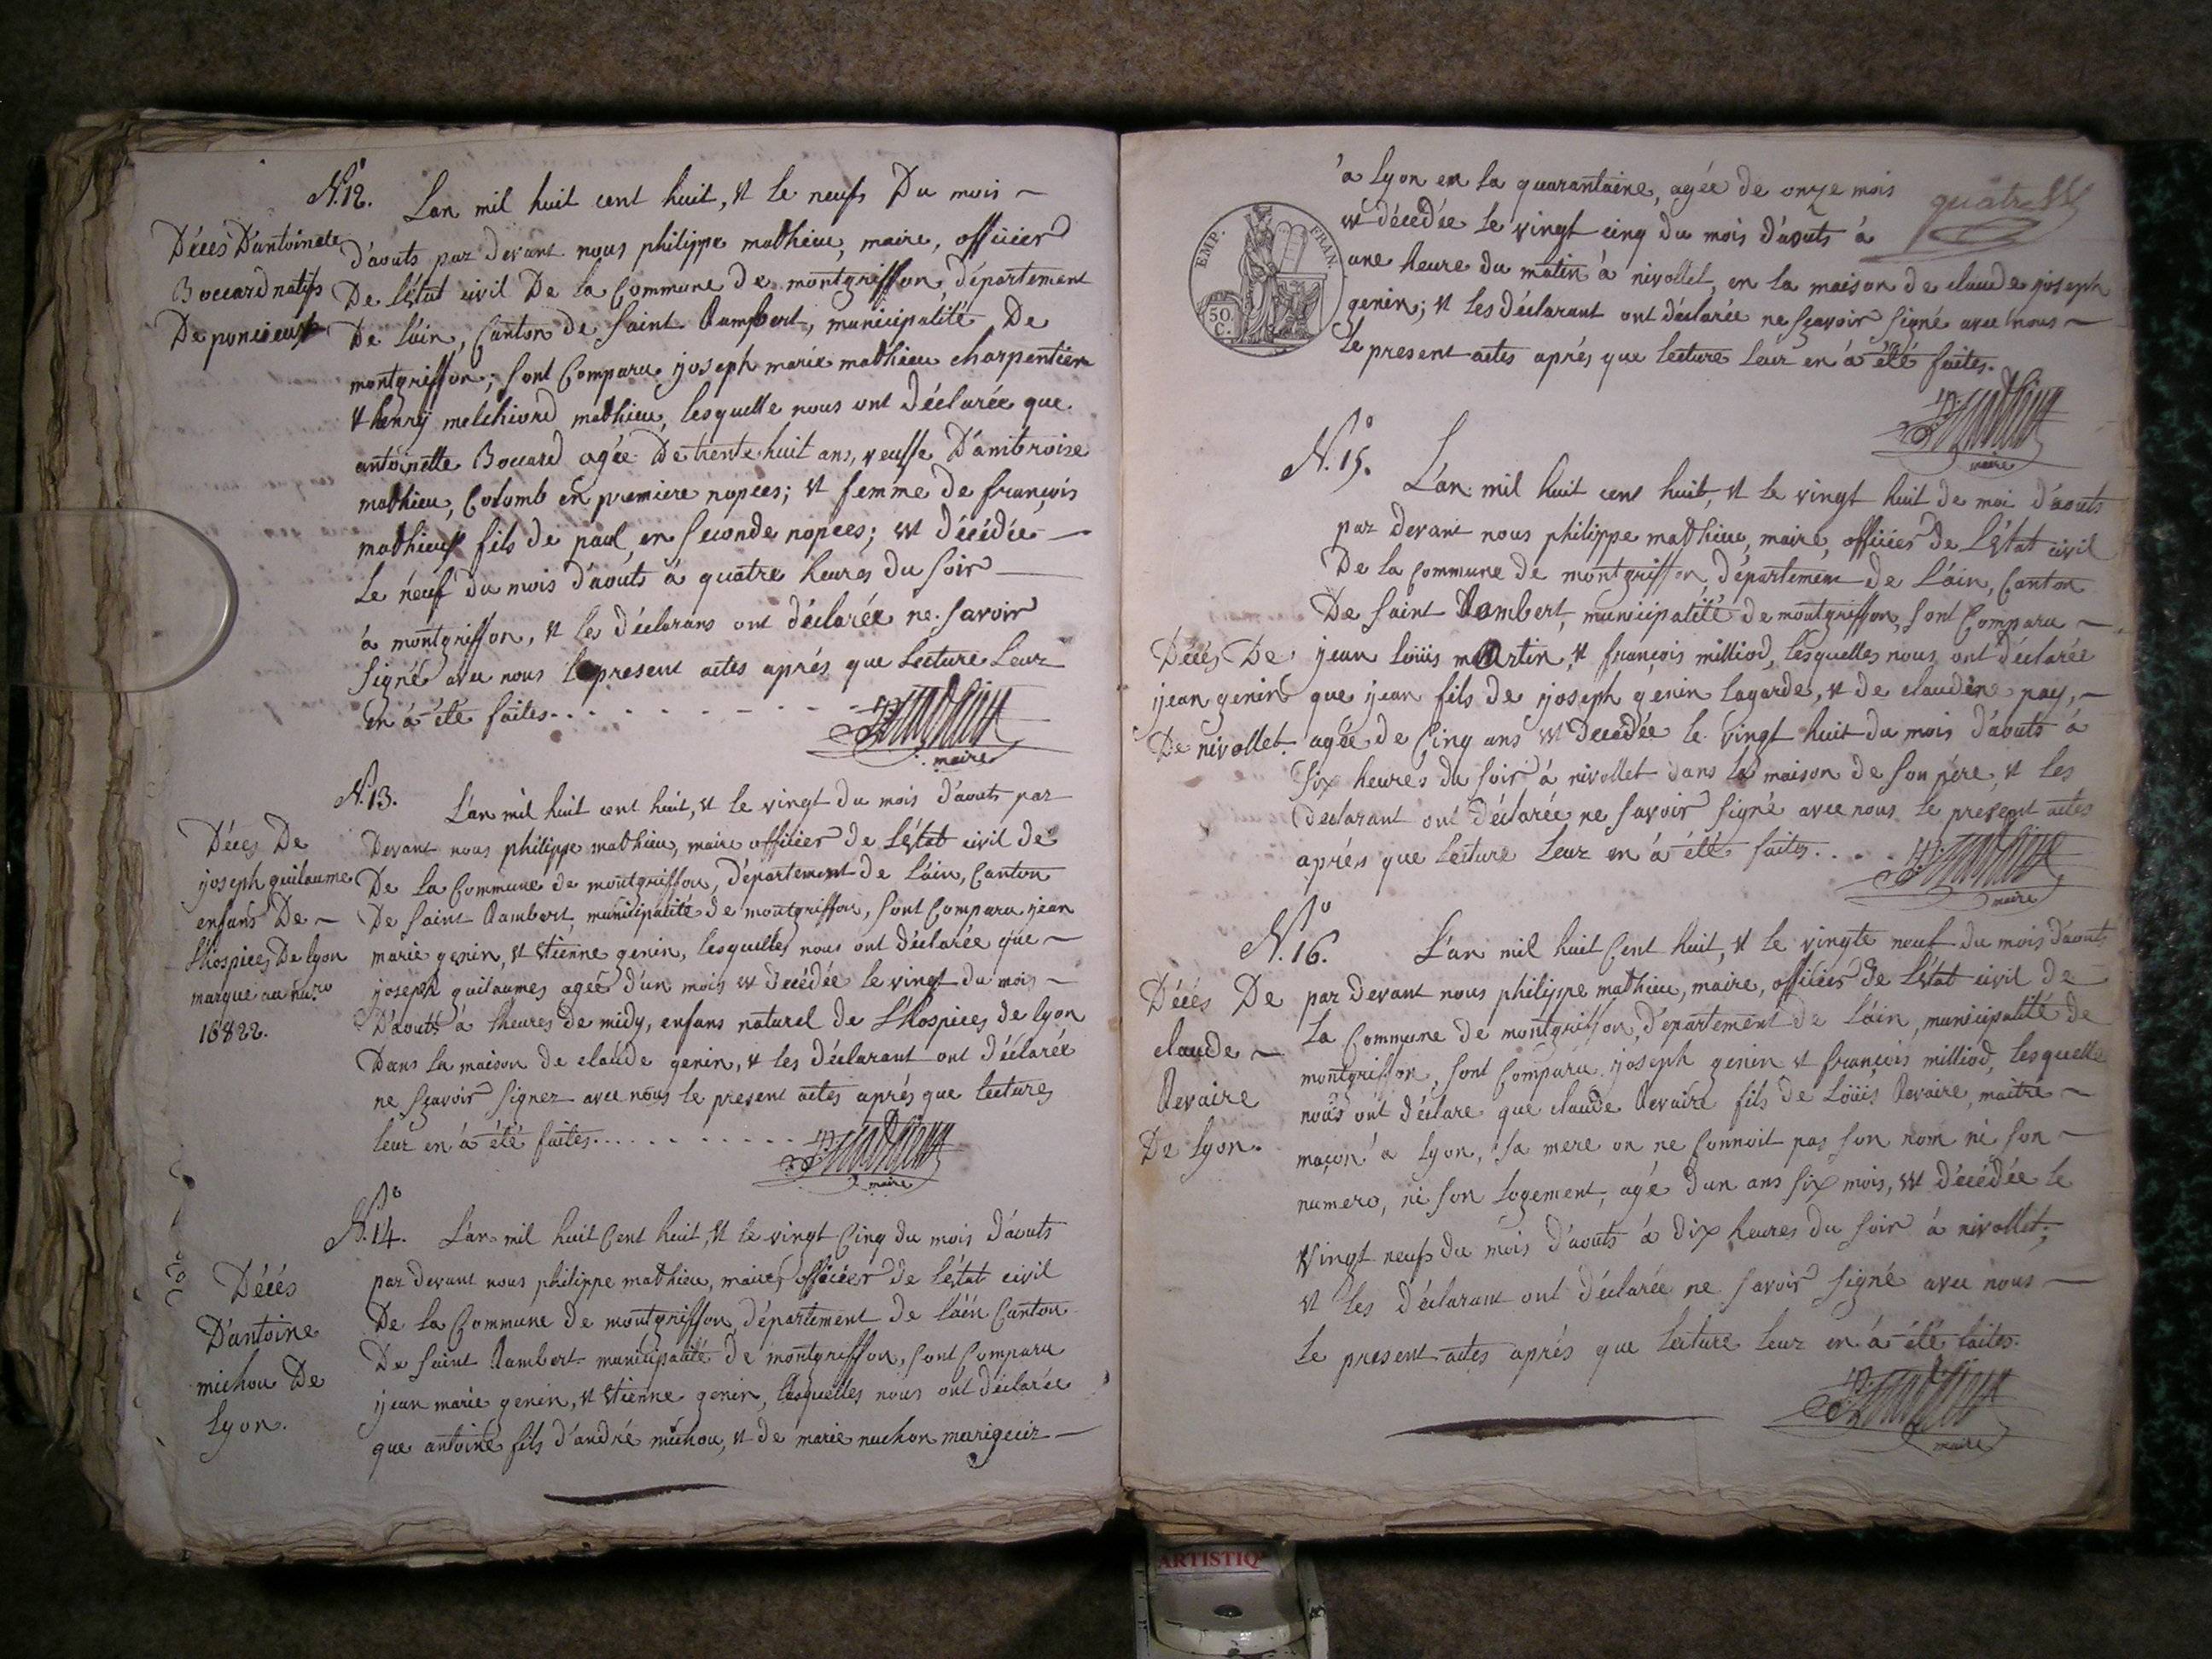 N.° 12. Lan mil huit cent huit, et le neufs Du mois
Décés D'antoinete
Boccard natifs
De poncieux
d'aouts par devant nous philippe mathieu, maire, officier
De l'état civil De la Commune de montgriffon, département
De lain, Canton de saint Rambert, municipalité De
montgriffon; sont Comparu joseph marie mathieu charpentier
et henry melchiord mathieu, lesquelle nous ont déclarée que
antoinette Boccard agée De trente huit ans, veuffe D'ambroise
mathieu, Colomb en premiere nopces; et femme de françois
mathieux fils de paul en seconde nopces; est décédée
le neuf du mois d'aouts à quatre heures du soir
à montgriffon, et les déclarans ont déclarée ne savoir
signé avec nous le present actes après que lecture leur
en a été faites.
maire
N.° 13. L'an mil huit cent huit, et le vingt du mois d'aouts par
Décés De
joseph guilaume
enfans De
l'hospices De lyon
marque au nu.ro
16822.
Devant nous philippe mathieu, maire officier de l'état civil de
De la Commune de montgriffon, département de lain, Canton
De saint Rambert, municipalité de montgriffon, sont Comparu jean
marie genin, et etienne genin, lesquelles nous ont déclarée que
joseph guilaumes agée d'un mois est décédée le vingt du mois
D'aouts à lheures de midy, enfans naturel de l'hospices de lyon
Dans la maison de claude genin, et les déclarant ont déclarée
ne sçavoir signer avec nous le present actes après que lectures
leur en a été faites.
maire
N.° 14. L'an mil huit Cent huit, et le vingt Cinq du mois d'aouts
Décés
D'antoine
michou De
lyon.
par devant nous philippe mathieu, maire, officier de l'état civil
De la Commune de montgriffon, département de lain Canton
De saint Rambert municipalité de montgriffon, sont Comparu
jean marie genin, et etienne genin, lesquelles nous ont déclarée
que antoine fils d'andré michou, et de marie nuchon
à lyon en la quarantaine, agée de onze mois
est décédée le vingt cinq du mois d'aouts à
une heure du matin à nivollet, en la maison de claude joseph
genin; et les déclarant ont déclarée ne sçavoir signé avec nous
le present actes après que lecture leur en a été faites.
quatre
EMP. FRAN.
50 C.
maire
N.° 15. L'an mil huit cent huit, et le vingt huit de moi d'aouts
par devant nous philippe mathieu, maire, officier de l'état civil
De la Commune de montgriffon, département de lain, Canton
De saint Rambert, municipalité de montgriffon, sont Comparu
Décés De
jean genin
De nivollet.
jean louis martin, et françois milliod, lesquelles nous ont déclarée
que jean fils de joseph genin lagarde, et de claudine pay,
agée de Cinq ans est décédée le vingt huit du mois d'aouts à
six heures du soir à nivollet dans la maison de son père, et les
déclarant ont déclarée ne savoir signé avec nous le present actes
après que lecture leur en a été faites.
maire
N.° 16. L'an mil huit Cent huit, et le vingte neuf du mois d'aouts
Décés De
claude
Revaire
De lyon.
par devant nous philippe mathieu, maire, officier de l'état civil de
la Commune de montgriffon, département de lain, municipalité de
montgriffon, sont Comparu joseph genin et françois milliod, lesquelle
nous ont déclare que claude Revaire fils de Louis Revaire, maitre
maçon à lyon, sa mere on ne Connoit pas son nom ni son
numero, ni son logement, agé d'un ans six mois, est décédée le
vingt neufs du mois d'aouts à dix heures du soir à nivollet;
et les déclarant ont déclarée ne savoir signé avec nous
le present actes après que lecture leur en a été faites.
maire
ARTISTIQ